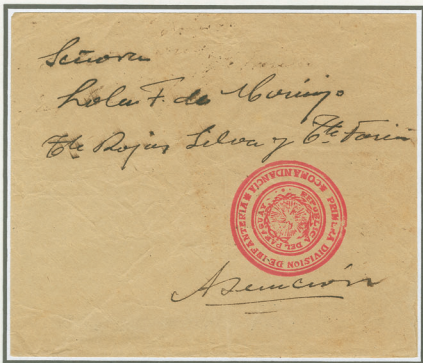 Señora
Lola F. de Moringo
Tte Rojas Silva y Tte Fariña
COMANDANCIA PRIMERA DIVISION DE INFANTERIA
REPUBLICA DEL PARAGUAY
Asunción